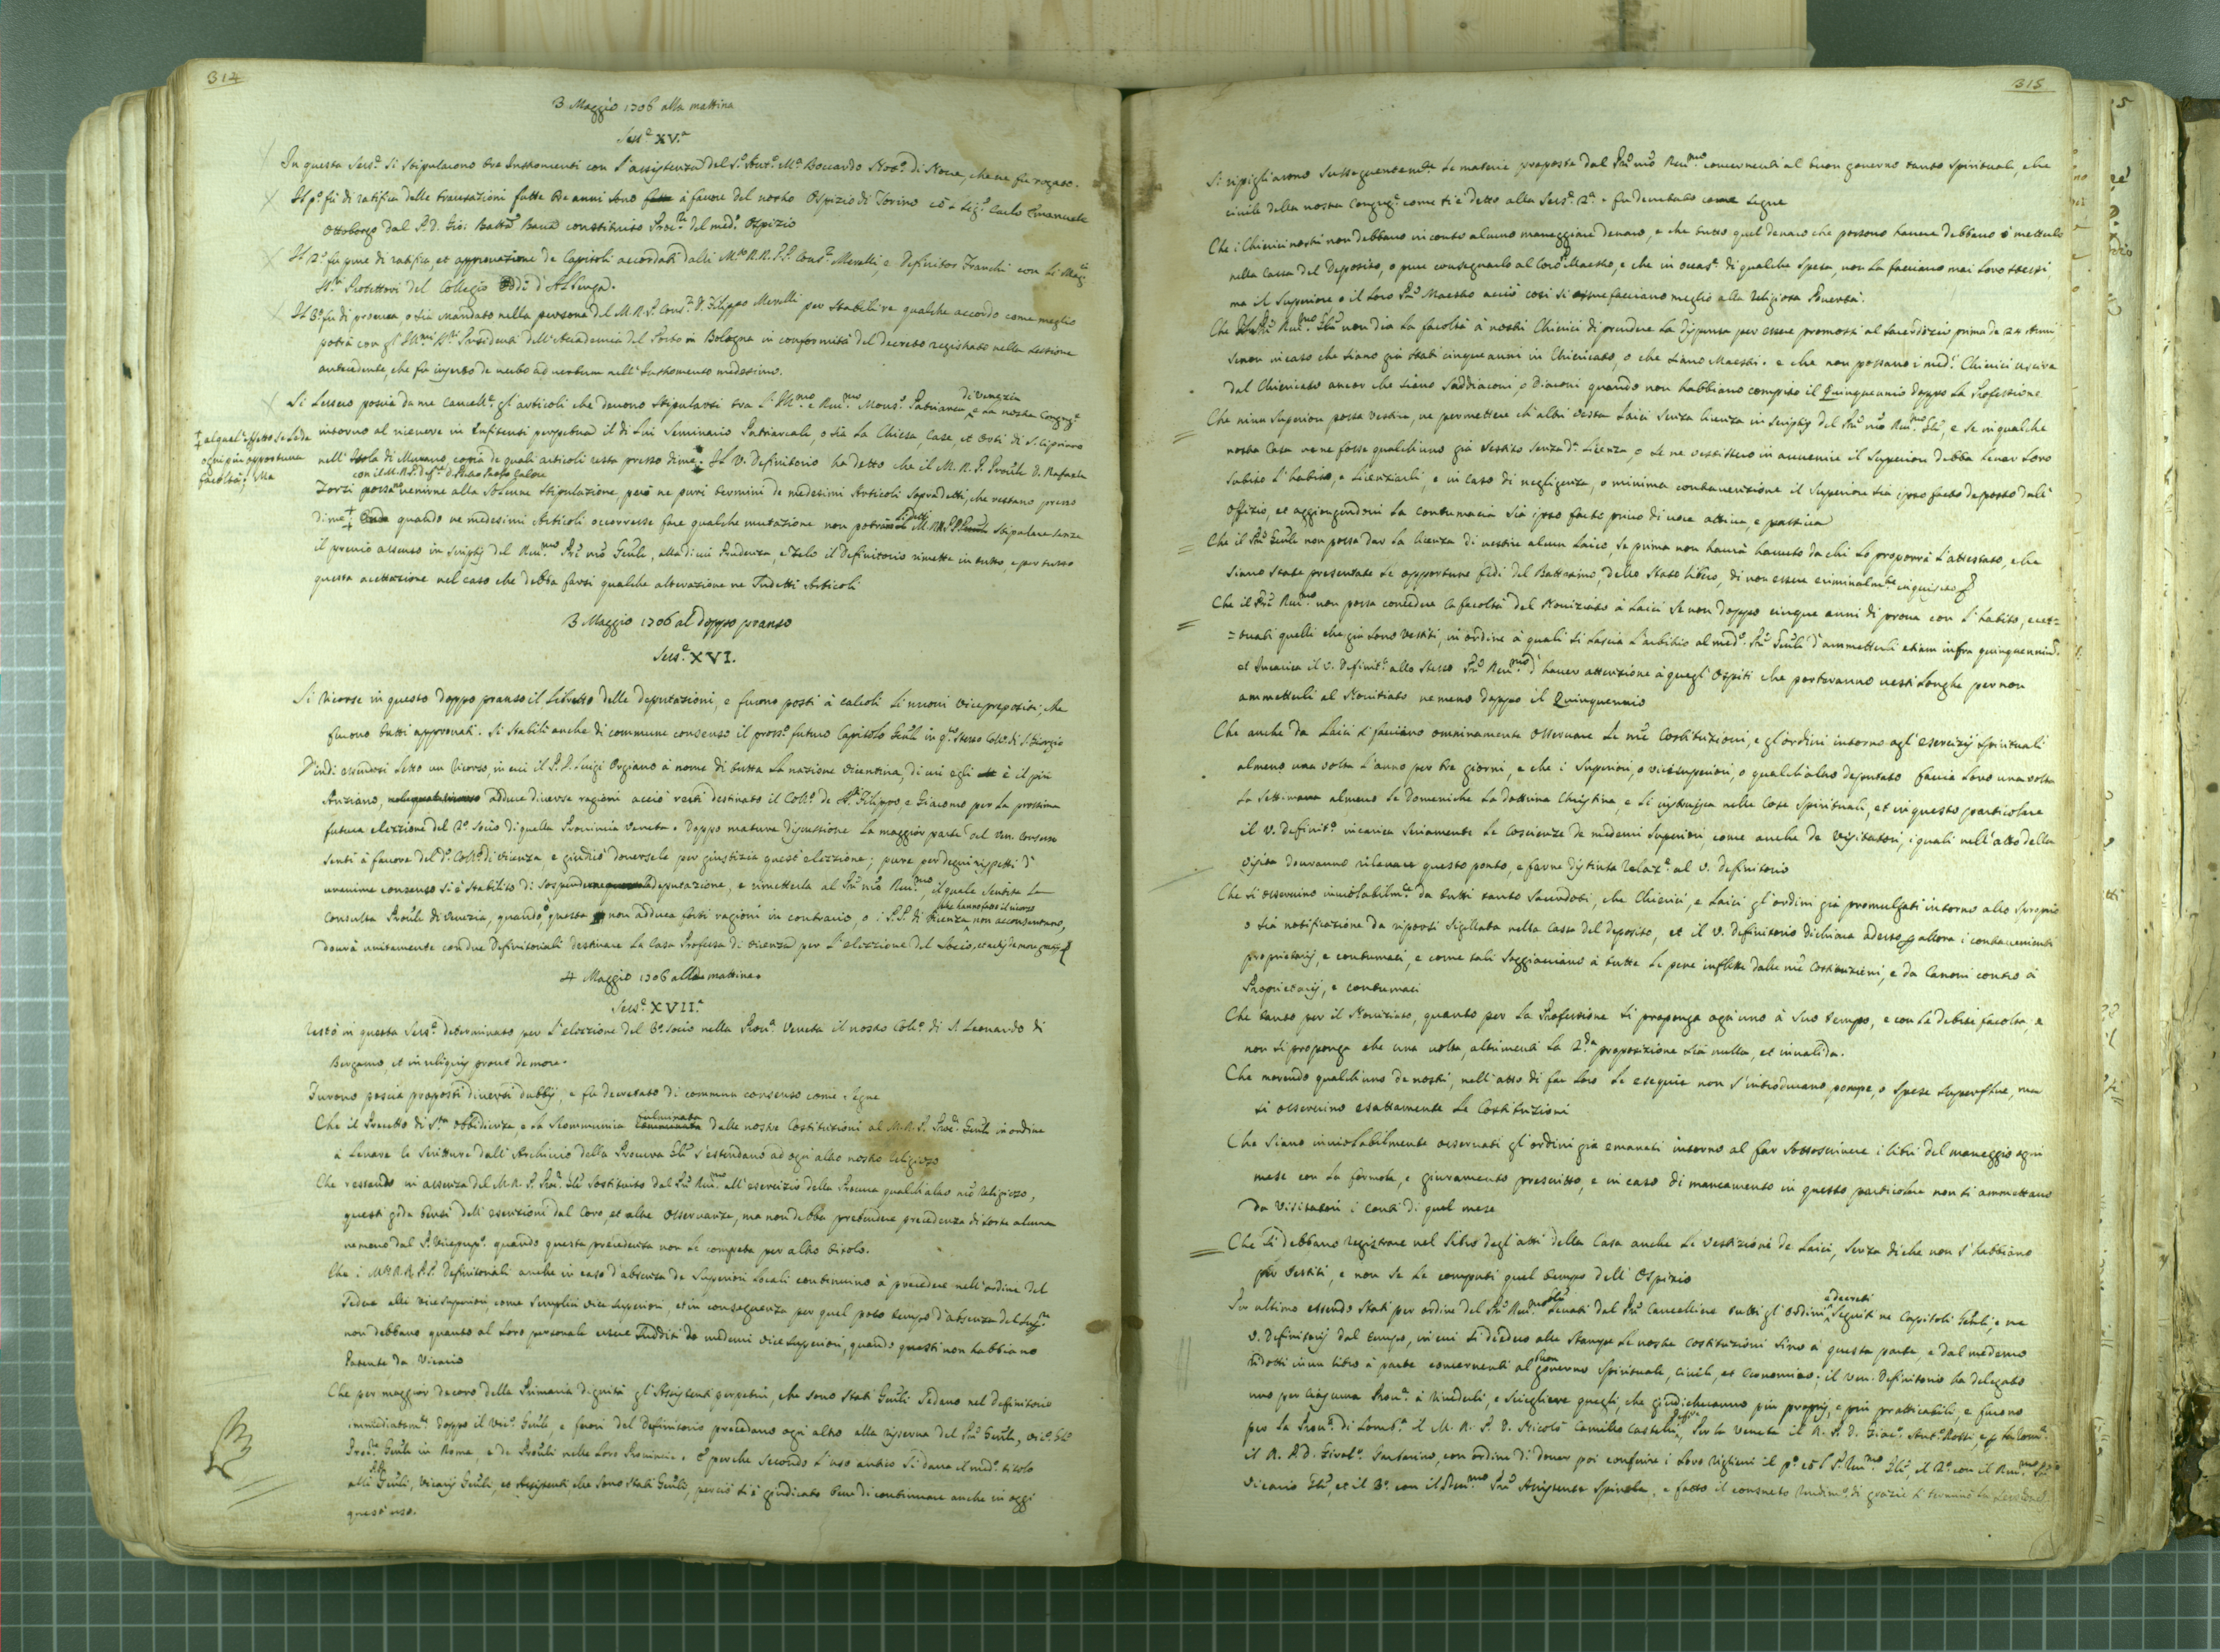 314
3 Maggio 1706 alla mattina
Sess.e XV.a
In questa Sess.e si stipularono tre Instromenti con l'assistenza del S.r Ant.o M.a Boccardo Not.o di Nove, che ne fu rogato.
Il p.o fu di ratifica delle transazioni fatte tre anni sono à favore del nostro Ospizio di Torino cō Sig.r Carlo Emanuele
Ottobergo dal P.D. Gio: Batta constituito Proc.re del med.o Ospizio
Il 2.o fu pure di ratifica, et approvazione de Capitoli accordati dalli M.to R.R. P.P. Cons.re Merelli, e Definitor Franchi con li
SS.ri Protettori del Collegio d'Albenga.
Il 3.o fu di procura, o sia mandato nella persona del M.R.P. Cons.re D. Filippo Merelli per stabilire qualche accordo come meglio
potrà con gl'Ill.mi SS.ri Presidenti dell'Accademia del Porto in Bologna in conformità del decreto registrato nella sessione
antecedente, che fu inserto de verbo ad verbum nell'Instromento medesimo.
di Venezia
Si lessero poscia da me Cancell.e gl'articoli che devono stipularsi tra l'Ill.mo e Rev.mo Mons.r Patriarca, e la nostra Congreg.e
intorno al ricevere in Enfiteusi perpetua il di lui Seminario Patriarcale, o sia la Chiesa, Case, et Orti di S. Cipriano
nell'Isola di Murano, copia de quali articoli resta presso di me: Il V. Definitorio ha detto che il M.R.P. Prov.le D. Rafaele
con il M.R.P. Def.re D. Pietro Paolo
Zorzi possa venirne alla solenne stipulazione, però ne puri termini de medesimi Articoli sopradetti, che restano presso
† al qual'effetto se le dà
ogni più opportuna
facoltà; Ma
di me † quando ne medesimi Articoli occorresse fare qualche mutazione non potranno li detti M.RR.PP. stipulare senza
il previo assenso in scriptis del Rev.mo P.re nr̃o Gen̄le, alla di cui Prudenza, e Zelo il Definitorio rimette in tutto, e per tutto
questa accettazione nel caso che debba farsi qualche alterazione ne sudetti Articoli
3 Maggio 1706 al doppo pranso
Sess.e XVI.
Si ricorse in questo doppo pranso il Libretto delle deputazioni, e furono posti à calcoli li nuovi Viceprepositi, che
furono tutti approvati. Si stabilì anche di commune consenso il pross.o futuro Capitolo Gen̄le in q.to stesso Coll.o di S. Giorgio
D'indi essendosi letto un ricorso, in cui il P.D. Luigi Orgiano à nome di tutta la nazione Vicentina, di cui egli è il più
Anziano, adduce diverse ragioni acciò resti destinato il Coll.o de SS. Filippo e Giacomo per la prossima
futura elezzione del 2.o Socio di quella Provincia Veneta. Doppo matura discussione la maggior parte del Ven. Consesso
sentì à favore del d.o Coll.o di Vicenza e giudicò doversele per giustizia quest'elezzione; pure per degni rispetti d'
unanime consenso si è stabilito di sospendere deputazione, e rimetterla al P.re nr̃o Rev.mo, il quale sentita la
che hanno fatto il ricorso
Consulta Prov̄le di Venezia, quando questa non adduca forti ragioni in contrario, o i P.P. di Vicenza non acconsentano,
dovrà unitamente con due Definitoriali destinare la Casa Professa di Vicenza per l'elezzione del Socio, et actis de more gratijs
4 Maggio 1706 alla mattina.
Sess.e XVII.a
Restò in questa Sess.e determinato per l'elezione del 3.o Socio nella Prov.a Veneta il nostro Coll.o di S. Leonardo di
Bergamo, et in reliquis prout de more.
Furono poscia proposti diversi dubbij, e fu decretato di commun consenso come segue
fulminata
Che il Precetto di S.ta Obbidienza, e la Scommunica dalle nostre Costituzioni al M.R.P. Proc.re Gen̄le in ordine
à levare le Scritture dall'Archivio della Procura Gl̄e s'estendano ad ogn'altro nostro religioso
Che restando in assenza del M.R.P. Proc.re Gl̄e sostituito dal P.re Rev.mo all'esercizio della Procura qualch'altro nr̃o Religioso,
questi goda bensì dell'esenzioni dal Coro, et altre osservanze, ma non debba pretendere precedenza di sorte alcuna
nemeno dal P. Viceprep.o quando questa precedenza non le competa per altro titolo.
Che i M.RR.PP. Definitoriali anche in caso d'absenza de Superiori locali continuino à precedere nell'ordine del
sedere alli Vicesuperiori come semplici vice superiori, et in conseguenza per quel poco tempo d'absenza del Sup.re
non debbano quanto al loro personale essere sudditi de medemi vice superiori, quando questi non habbiano
Patente da Vicario
Che per maggior decoro della Primaria dignità gl'Assistenti perpetui, che sono stati Gen̄li sedano nel Definitorio
immediatam.te doppo il Vic.o Gen̄le, e fuori del Definitorio precedano ogn'altro alla riserva del P.re Gen̄le, Vic.o Gl̄e
Proc.re Gen̄le in Roma, e de Prov̄li nelle loro Provincie. E perche secondo l'uso antico si dava il med.o titolo
alli Gen̄li, Vicarij Gen̄li, et Assistenti che sono stati Gen̄li, perciò si è giudicato bene di continuare anche in oggi
quest'uso.
315
Si ripigliarono sussequentem.te le materie proposte dal P.re nr̃o Rev.mo concernenti al buon governo tanto spirituale, che
civile della nostra Congreg.e come si è detto alla Sess.e 2.a. e fu decretato come segue
Che i Chierici nostri non debbano in conto alcuno maneggiare denaro, e che tutto quel denaro che possono havere debbano ò metterlo
nella Cassa del Deposito, o pure consegnarlo al loro P. Maestro, e che in occas.e di qualche spesa, non la facciano mai loro stessi,
ma il Superiore o il loro P.re Maestro acciò così si assuefacciano meglio alla religiosa Povertà.
Che il P.re Rev.mo Gl̄e non dia la facoltà à nostri Chierici di prendere la dispensa per essere promossi al Sacerdozio prima de 24 Anni
senon in caso che siano già stati cinque anni in Chiericato, o che siano Maestri. e che non possano i med.i Chierici uscire
dal Chiericato ancor che sieno Suddiaconi, o Diaconi quando non habbiano compito il Quinquennio doppo la Professione
Che niun Superiore possa vestire, ne permettere ch'altri vesta Laici senza licenza in scriptis del P.re nr̃o Rev.mo Gl̄e, e se in qualche
nostra Casa ve ne fosse qualch'uno già vestito senza d.a Licenza, o se ne vestissero in avvenire il Superiore debba levar loro
subito l'habito, e licenziarli, e in caso di negligenza, o minima contravenzione il Superiore sia ipso facto deposto dall'
offizio, et aggiongendovi la contumacia sia ipso facto privo di voce attiva, e passiva
Che il P.re Gen̄le non possa dar la licenza di vestire alcun Laico, se prima non haurà havuto da chi lo proporrà l'attestato, che
siano state presentate le opportune fedi del Battesimo, dello stato libero, di non essere criminalm.te inquisito
Che il P.re Rev.mo non possa concedere la facoltà del Noviziato à Laici se non doppo cinque anni di prova con l'habito, eccet=
=tuati quelli che già sono vestiti, in ordine à quali si lascia l'arbitrio al med.o P.re Gen̄le d'ammetterli etiam infra quinquennium.
et incarica il V. Definit.o allo stesso P.re Rev.mo d'haver attenzione à quegl'Ospiti che porteranno vesti longhe per non
ammetterli al Novitiato ne meno doppo il Quinquennio
Che anche da Laici si facciano omninamente osservare le nr̃e Costituzioni, e gl'ordini intorno agl'esercizij spirituali
almeno una volta l'anno per tre giorni, e che i Superiori, o vicesuperiori, o qualch'altro deputato faccia loro una volta
la settimana almeno le Domeniche la dottrina Christiana, e li istruisca nelle Cose spirituali, et in questo particolare
il V. Definit.o incarica seriamente le Coscienze de medemi Superiori, come anche de Visitatori, i quali nell'atto della
visita dovranno rilevare questo ponto, e farne distinta relaz.e al V. Definitorio
Che si osservino inviolabilm.te da tutti tanto Sacerdoti, che Chierici, e Laici gl'ordini già promulgati intorno allo sproprio
o sia notificazione da riporsi sigillata nella Cassa del deposito, et il V. Definitorio dichiara adesso per allora i contravenienti
proprietarij, e contumaci, e come tali soggiacciano à tutte le pene inflitte dalle nr̃e Costituzioni, e da Canoni contro à
Proprietarij, e contumaci
Che tanto per il Noviziato, quanto per la Professione si proponga ogn'uno à suo tempo, e con le debite facoltà, e
non si proponga che una volta, altrimenti la 2.da proposizione sia nulla, et invalida.
Che morendo qualch'uno de nostri, nell'atto di far loro le esequie non s'introducano pompe, o spese superflue, ma
si osservino esattamente le Costituzioni
Che siano inviolabilmente osservati gl'ordini già emanati intorno al far sottoscrivere i libri del maneggio ogni
mese con la formola, e giuramento prescritto, e in caso di mancamento in questo particolare non si ammettano
da Visitatori i conti di quel mese
Che si debbano registrare nel libro degl'atti della Casa anche le vestizioni de Laici, senza di che non s'habbiano
per vestiti, e non se le computi quel tempo dell'Ospizio
e decreti
Per ultimo essendo stati per ordine del P.re Rev.mo Gl̄e levati dal P.re Cancelliere tutti gl'ordini seguiti ne Capitoli Gen̄li, e ne
V. Definitorij dal tempo, in cui si diedero alle stampe le nostre Costituzioni sino à questa parte, e dal medemo
buon
ridotti in un libro à parte concernenti al governo spirituale, civile, et economico; il Ven. Definitorio ha delegato
uno per ciascuna Prov.a à rivederli, e sciegliere quegli, che giudicheranno più proprij, e più pratticabili, e furono
per la Prov.a di Lomb.a il M.R.P.D. Nicolò Camillo Castelli, Per la Veneta il R.P.D. Giac.o Ant.o Rossi, e per la Rom.a
il R.P.D. Girol.o, con ordine di dover poi conferire i loro riflessi il p.o cō l P. Rev.mo Gl̄e, il 2.o con il Rev.mo P.re
Vicario Gl̄e, et il 3.o con il Rev.mo P.re Assistente Spinola. e fatto il consueto rendim.o di grazie si terminò la sessione